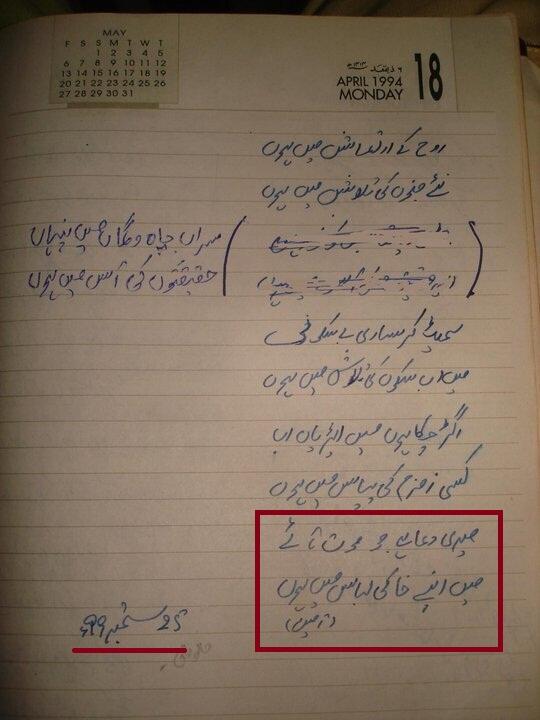 MAY
F S S M T W T
1 2 3 4 5
6 7 8 9 10 11 12
13 14 15 16 17 18 19
20 21 22 23 24 25 26
27 28 29 30 31
APRIL 1994
MONDAY
18
روح کے ارتعاش میں ہوں
نئے جنوں کی تلاش میں ہوں
سراب چاہ و گماں میں پنہاں
حقیقتوں کی آس میں ہوں
سمیٹ کر ساری بے سکونی
میں اب سکوں کی تلاش میں ہوں
رگڑ چکا ہوں میں ایڑیاں اب
کسی زمزم کی پیاس میں ہوں
میری دعا ہے جو موت آئے
میں اپنے خاکی لباس میں ہوں
(آمین)
25 ستمبر 99ء